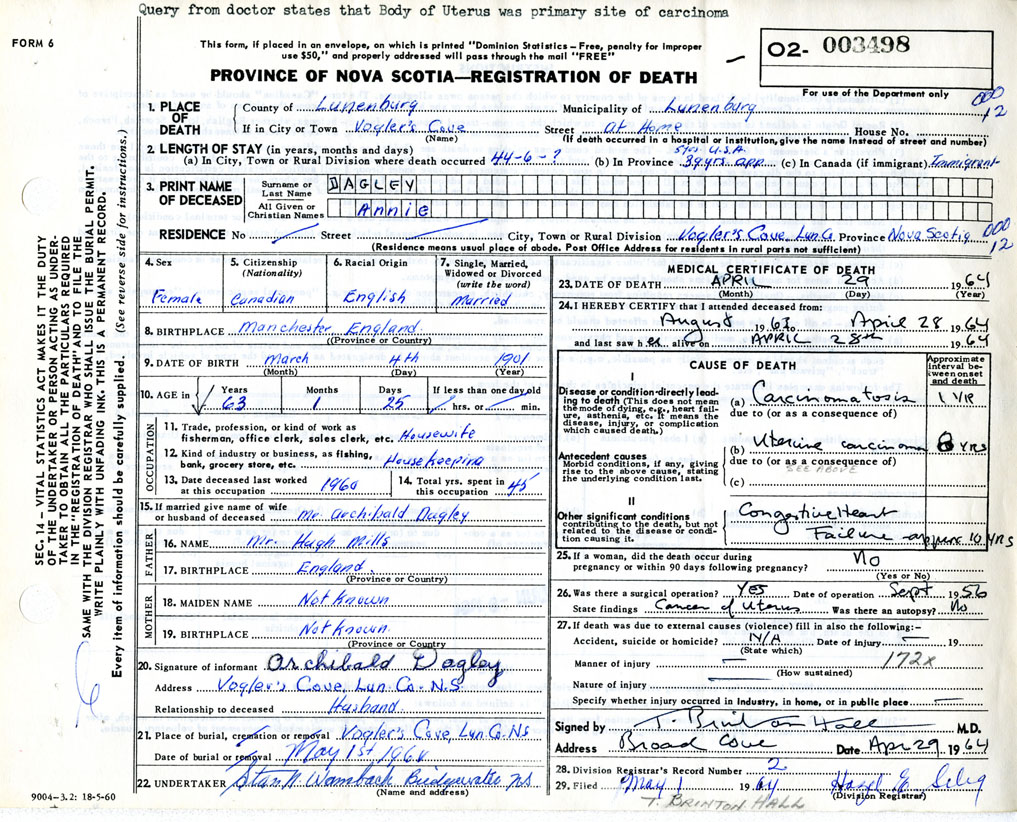 Query from doctor states that Body of Uterus was primary site of carcinoma
FORM 6
This form, if placed in an envelope, on which is printed "Dominion Statistics – Free, penalty for improper
use $50," and properly addressed will pass through the mail "FREE"
O2- 003498
For use of the Department only
PROVINCE OF NOVA SCOTIA—REGISTRATION OF DEATH
000
12
1. PLACE OF DEATH
County of Lunenburg Municipality of Lunenburg
If in City or Town Vogler's Cove Street at Home House No.
(Name) (If death occurred in a hospital or institution, give the name instead of street and number)
2. LENGTH OF STAY (in years, months and days) 5 yrs. U.S.A.
(a) In City, Town or Rural Division where death occurred 44-6-? (b) In Province 39 yrs. app. (c) In Canada (if immigrant) Immigrant
3. PRINT NAME OF DECEASED
Surname or Last Name DAGLEY
All Given or Christian Names Annie
RESIDENCE No Street City, Town or Rural Division Vogler's Cove, Lun Co. Province Nova Scotia
000
12
(Residence means usual place of abode. Post Office Address for residents in rural parts not sufficient)
4. Sex
Female
5. Citizenship
(Nationality)
Canadian
6. Racial Origin
English
7. Single, Married,
Widowed or Divorced
(write the word)
Married
8. BIRTHPLACE Manchester England
((Province or Country)
9. DATE OF BIRTH March 4th 1901
(Month) (Day) (Year)
10. AGE in Years Months Days If less than one day old
63 1 25 hrs. or min.
OCCUPATION
11. Trade, profession, or kind of work as
fisherman, office clerk, sales clerk, etc. Housewife
12. Kind of industry or business, as fishing,
bank, grocery store, etc. Housekeeping
13. Date deceased last worked
at this occupation 1960
14. Total yrs. spent in
this occupation 45
15. If married give name of wife
or husband of deceased Mr. Archibald Dagley
FATHER
16. NAME Mr. Hugh Mills
17. BIRTHPLACE England
(Province or Country)
MOTHER
18. MAIDEN NAME Not Known
19. BIRTHPLACE Not Known
(Province or Country
20. Signature of informant Archibald Dagley
Address Vogler's Cove, Lun. Co. N.S.
Relationship to deceased Husband
21. Place of burial, cremation or removal Vogler's Cove, Lun. Co. NS
Date of burial or removal May 1st 1964
22. UNDERTAKER Stan N Wambach Bridgewater NS
(Name and address)
MEDICAL CERTIFICATE OF DEATH
23. DATE OF DEATH APRIL 29 1964
(Month) (Day) (Year)
24. I HEREBY CERTIFY that I attended deceased from:
August 1962 to April 28 1964
and last saw her alive on APRIL 28th 1964
CAUSE OF DEATH
Approximate
interval be-
tween onset
and death
I
Disease or condition directly lead-
ing to death (This does not mean
the mode of dying, e.g., heart fail-
ure, asthenia, etc. It means the
disease, injury, or complication
which caused death.)
(a) Carcinomatosis 1 YR
due to (or as a consequence of)
Antecedent causes
Morbid conditions, if any, giving
rise to the above cause, stating
the underlying condition last.
(b) Uterine carcinoma 8 YRS
due to (or as a consequence of)
SEE ABOVE
(c)
II
Other significant conditions
contributing to the death, but not
related to the disease or condi-
tion causing it.
Congestive Heart
Failure approx 10 YRS
25. If a woman, did the death occur during
pregnancy or within 90 days following pregnancy? No
(Yes or No)
26. Was there a surgical operation? Yes Date of operation Sept 1956
State findings Cancer of Uterus Was there an autopsy? No
27. If death was due to external causes (violence) fill in also the following:
Accident, suicide or homicide? N/A Date of injury 19
(State which)
172x
Manner of injury
(How sustained)
Nature of injury
Specify whether injury occurred in Industry, in home, or in public place
Signed by T. Brinton Hall M.D.
Address Broad Cove Date Apr 29 1964
28. Division Registrar's Record Number 2
29. Filed May 1 1964
(Division Registrar)
T. BRINTON HALL
SEC. 14 – VITAL STATISTICS ACT MAKES IT THE DUTY
OF THE UNDERTAKER OR PERSON ACTING AS UNDER-
TAKER TO OBTAIN ALL THE PARTICULARS REQUIRED
IN THE "REGISTRATION OF DEATH" AND TO FILE THE
SAME WITH THE DIVISION REGISTRAR WHO SHALL ISSUE THE BURIAL PERMIT.
WRITE PLAINLY WITH UNFADING INK. THIS IS A PERMANENT RECORD.
Every item of information should be carefully supplied. (See reverse side for instructions.)
9004-3.2: 18-5-60